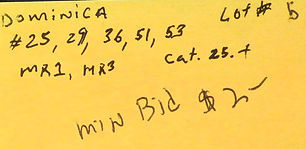 DOMINICA Lot # 5
#25, 29, 36, 51, 53
MR1, MR3 Cat. 25.+
min Bid $2-